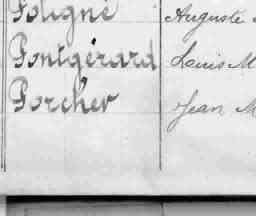 Foligné Auguste
Pontgérard Louis M
Porcher Jean M